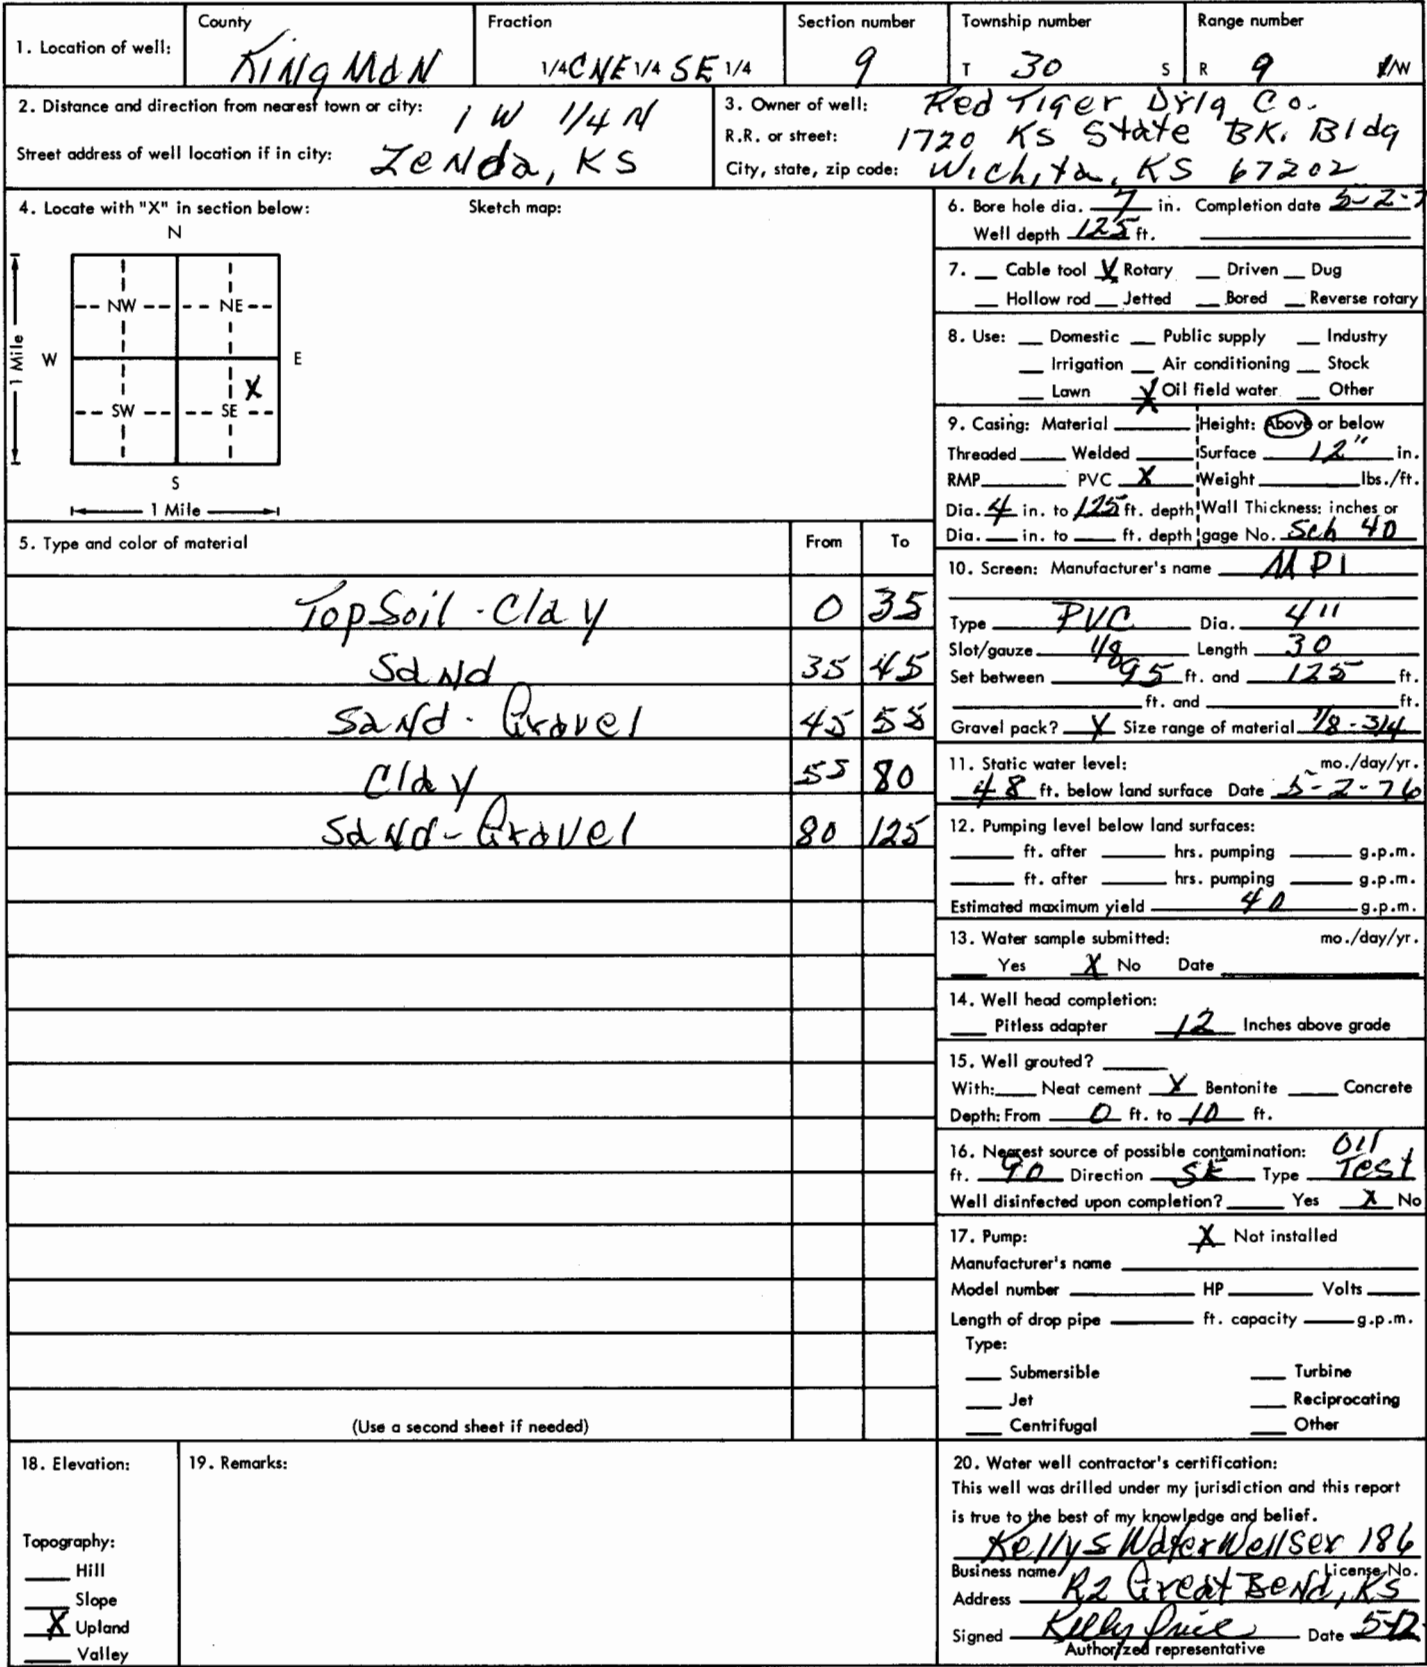 1. Location of well:
County
KiNgMaN
Fraction
1/4 C NE 1/4 SE 1/4
Section number
9
Township number
T 30 S
Range number
R 9 /W
2. Distance and direction from nearest town or city: 1 W 1/4 N
Street address of well location if in city: ZeNda, KS
3. Owner of well: Red Tiger Drlg Co.
R.R. or street: 1720 KS State BK. Bldg
City, state, zip code: Wichita, KS 67202
4. Locate with "X" in section below:
Sketch map:
N
NW NE
W E
1 Mile
X
SW SE
S
1 Mile
5. Type and color of material From To
TopSoil - Clay 0 35
SaNd 35 45
SaNd - Gravel 45 55
Clay 55 80
SaNd - Gravel 80 125
(Use a second sheet if needed)
6. Bore hole dia. 7 in. Completion date 5-2-7
Well depth 125 ft.
7. __ Cable tool X Rotary __ Driven __ Dug
__ Hollow rod __ Jetted __ Bored __ Reverse rotary
8. Use: __ Domestic __ Public supply __ Industry
__ Irrigation __ Air conditioning __ Stock
__ Lawn X Oil field water __ Other
9. Casing: Material ____ Height: Above or below
Threaded ____ Welded ____ Surface 12" in.
RMP ____ PVC X Weight ____ lbs./ft.
Dia. 4 in. to 125 ft. depth Wall Thickness: inches or
Dia. ___ in. to ___ ft. depth gage No. Sch 40
10. Screen: Manufacturer's name MPI
Type PVC Dia. 4"
Slot/gauze 1/8 Length 30
Set between 95 ft. and 125 ft.
____ ft. and ____ ft.
Gravel pack? X Size range of material 1/8 - 3/4
11. Static water level: mo./day/yr.
48 ft. below land surface Date 5-2-76
12. Pumping level below land surfaces:
____ ft. after ____ hrs. pumping ____ g.p.m.
____ ft. after ____ hrs. pumping ____ g.p.m.
Estimated maximum yield 40 g.p.m.
13. Water sample submitted: mo./day/yr.
__ Yes X No Date ____
14. Well head completion:
__ Pitless adapter 12 Inches above grade
15. Well grouted? ____
With: __ Neat cement X Bentonite __ Concrete
Depth: From 0 ft. to 10 ft.
16. Nearest source of possible contamination: Oil
ft. 90 Direction SE Type Test
Well disinfected upon completion? ____ Yes X No
17. Pump: X Not installed
Manufacturer's name ____
Model number ____ HP ____ Volts ____
Length of drop pipe ____ ft. capacity ____ g.p.m.
Type:
__ Submersible __ Turbine
__ Jet __ Reciprocating
__ Centrifugal __ Other
18. Elevation:
Topography:
__ Hill
__ Slope
X Upland
__ Valley
19. Remarks:
20. Water well contractor's certification:
This well was drilled under my jurisdiction and this report
is true to the best of my knowledge and belief.
Kellys Water Well Ser 186
Business name License No.
Address R2 Great Bend, KS
Signed Kelly Price Date 5-12
Authorized representative